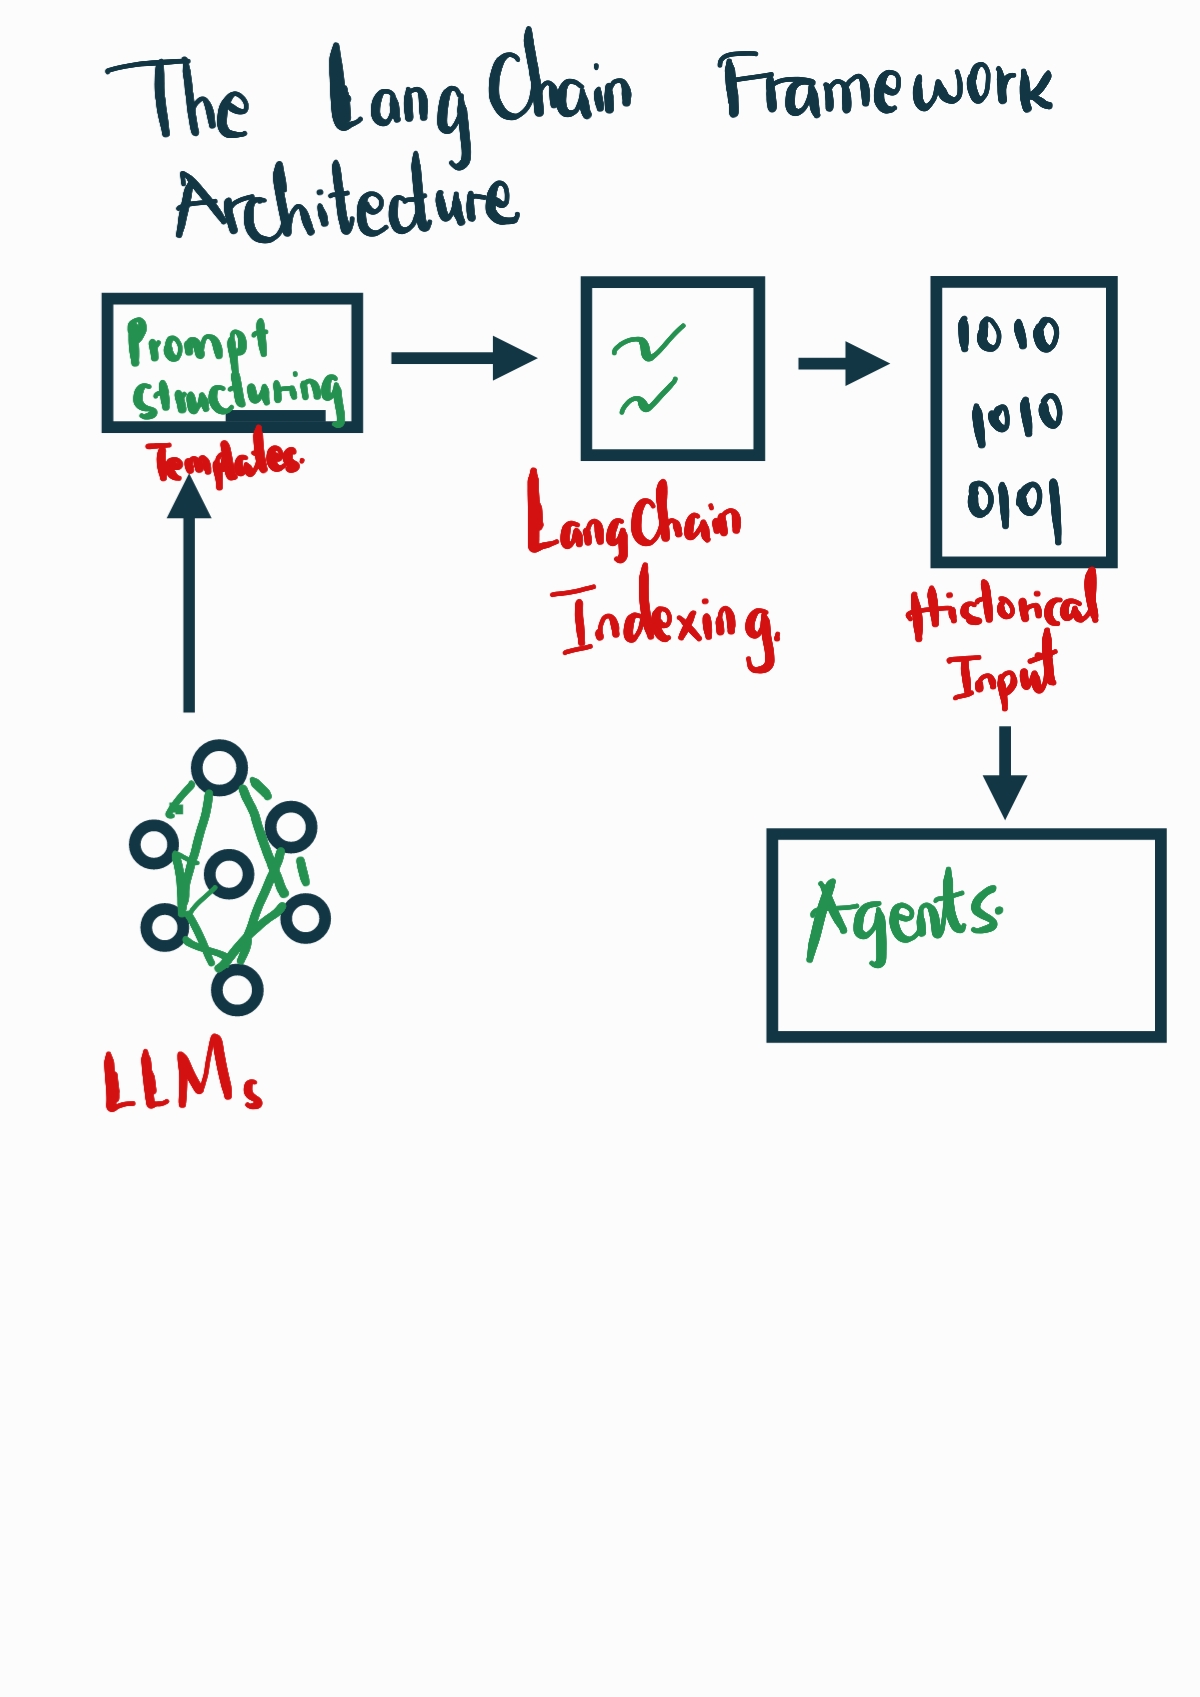 The LangChain Framework
Architecture
Prompt
structuring
Templates.
LangChain
Indexing.
1010
1010
0101
Historical
Input
Agents.
LLMs